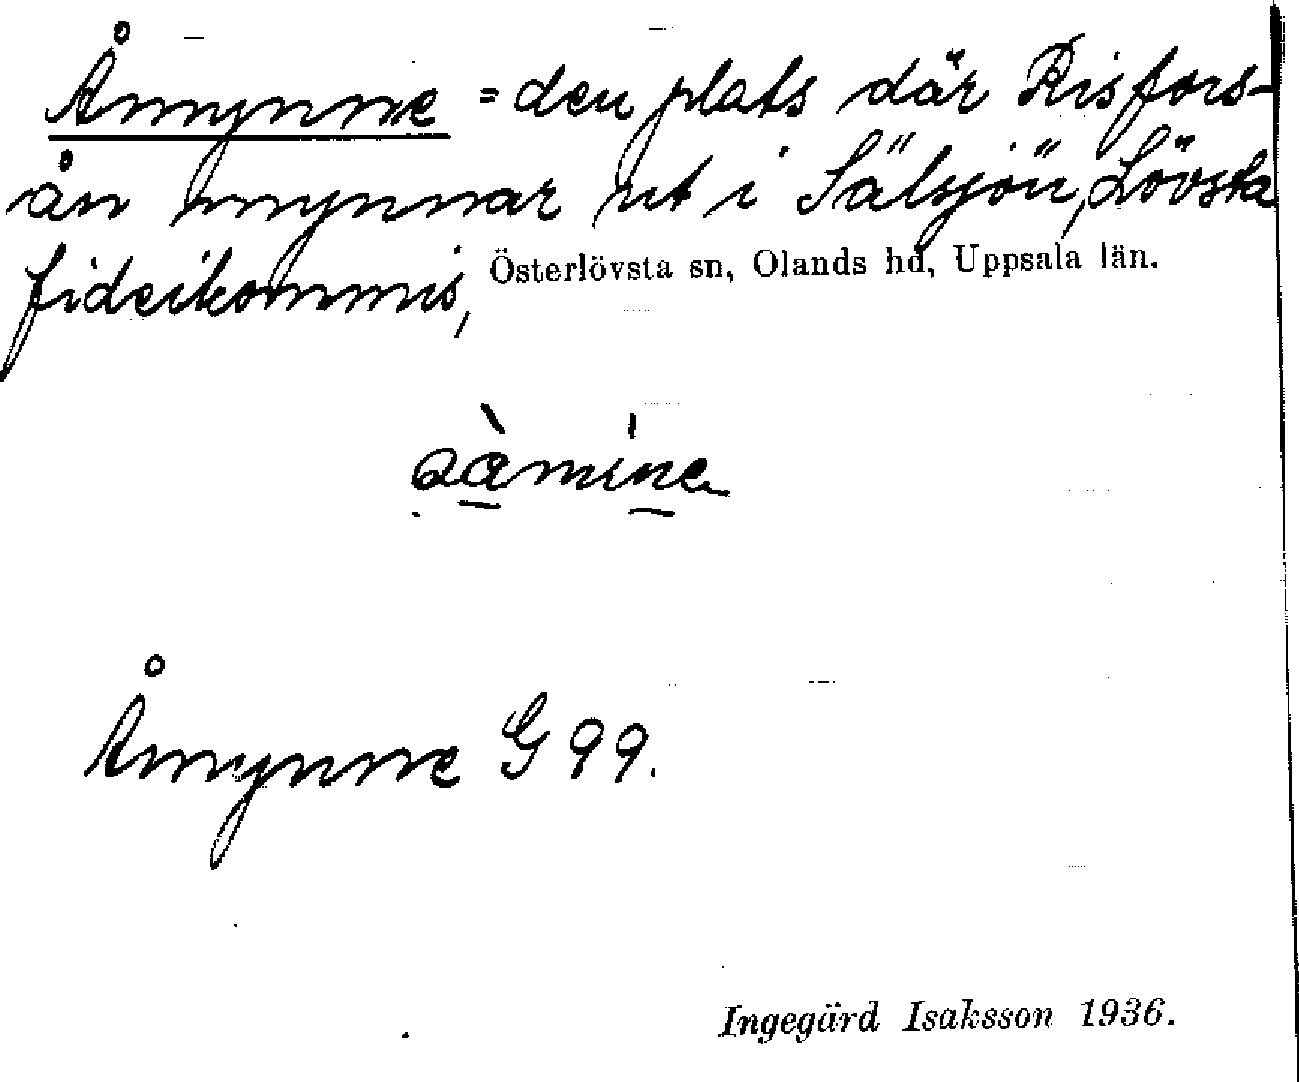 Åmynne = den plats där Risfors-
ån mynnar ut i Sälsjön, Lövsta
fideikommis, Österlövsta sn, Olands hd, Uppsala län.
Åmynne G 99.
Ingegärd Isaksson 1936.